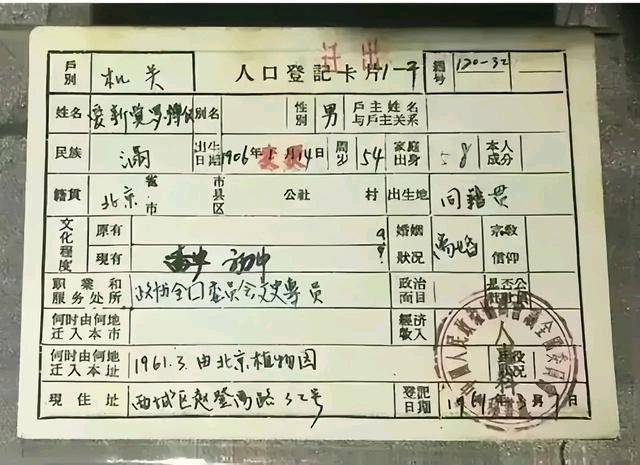 迁出
戶別 机关 人口登記卡片1-平 編号 120-32
姓名 愛新覺罗溥仪 別名 性別 男 戶主姓名与戶主关系
民族 滿 出生日期 1906年 月14日 周岁 54 家庭出身 本人成分
籍貫 北京 省市 市县区 公社 村 出生地 同籍贯
文化程度 原有 婚姻狀況 离婚 宗教信仰
現有 初中
职業和服务处所 政协全口委員会文史專員 政治面目
何时由何地迁入本市 經济收入
何时由何地迁入本址 1961.3.由北京植物园
現住址 西城区赵登禹路32号 登記日期 1961年3月7日
人事科